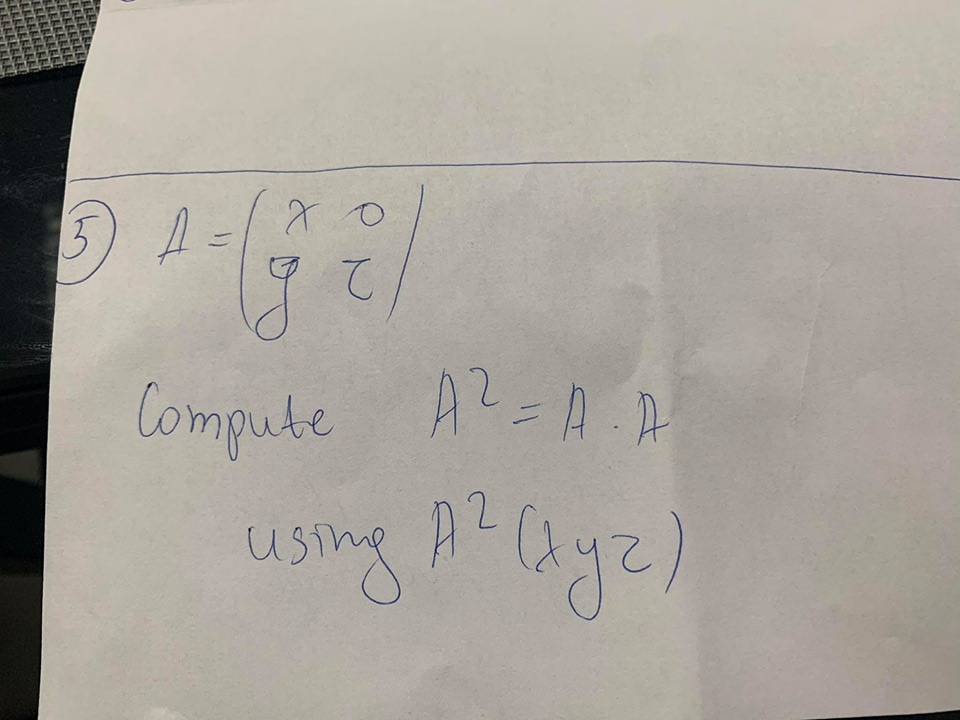 5 A = ( x 0
y z )
Compute A² = A . A
using A² (xyz)